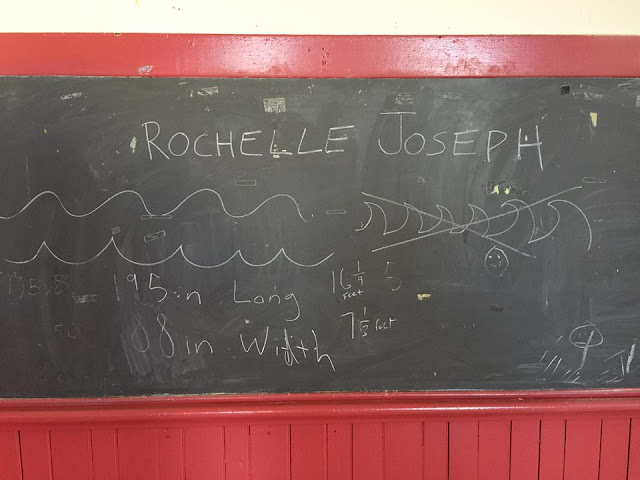 ROCHELLE JOSEPH
195in Long 16 1/4 feet 5
88in Width 7 1/3 feet